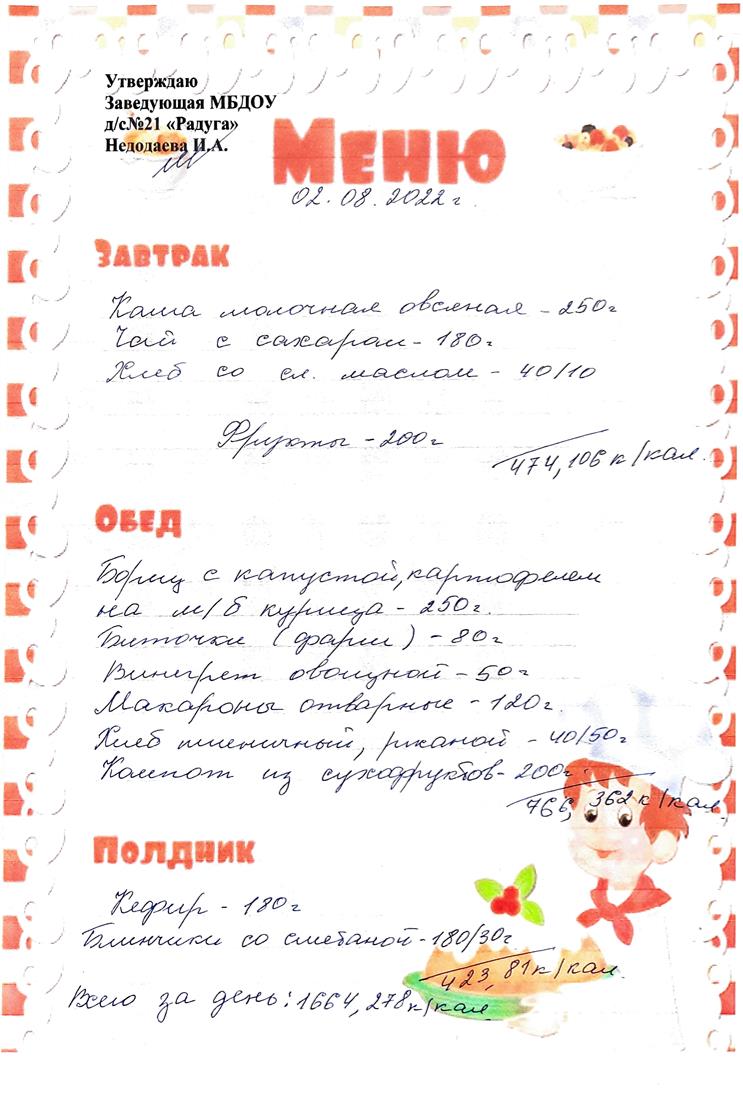 Утверждаю
Заведующая МБДОУ
д/с№21 «Радуга»
Недодаева И.А.
Меню
02.08.2022г.
Завтрак
Каша молочная овсяная - 250г
Чай с сахаром - 180г
Хлеб со сл. маслом - 40/10
Фрукты - 200г
474,106 к/кал.
Обед
Борщ с капустой, картофелем
на м/б курица - 250г.
Биточки (фарш) - 80г
Винегрет овощной - 50г
Макароны отварные - 120г.
Хлеб пшеничный, ржаной - 40/50г
Компот из сухофруктов - 200г.
766,362 к/кал.
Полдник
Кефир - 180г
Блинчики со сметаной - 180/30г
423,81к/кал.
Всего за день: 1664,278к/кал